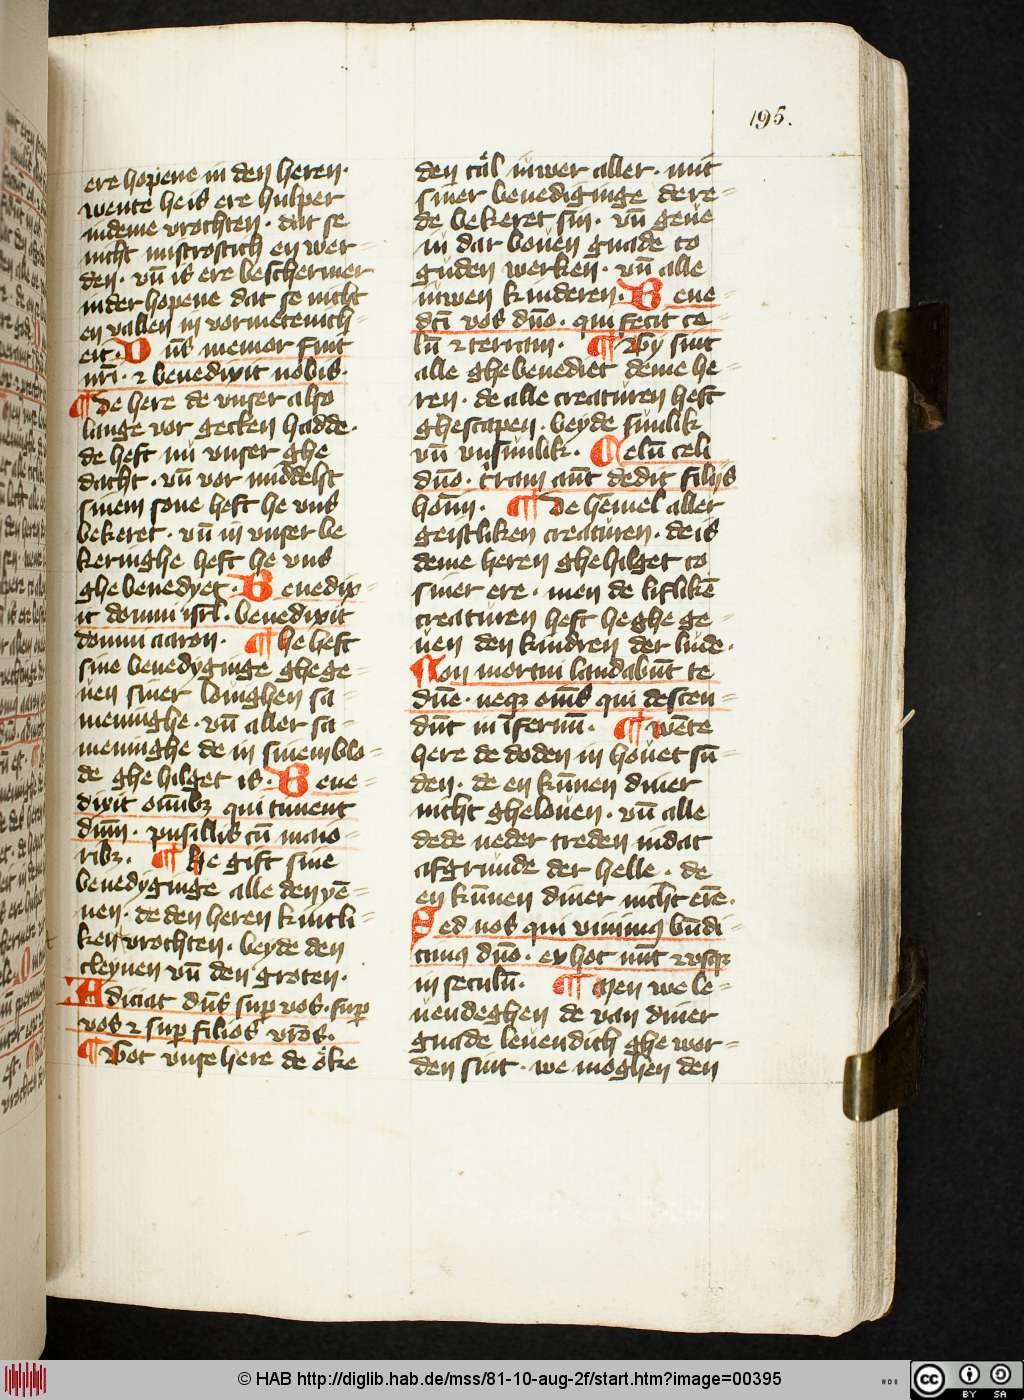 195.
ere hopene in den heren·
wente he is ere hulper
in deme vrochten· dat se
nicht mistrostich en wer=
den· vn̄ is ere beschermer
in der hopene dat se nicht
en vallen in vormetenich=
eit· Dn̄s memor fuit
nr̄i· ⁊ benedixit nobis·
¶ De here de vnser also
lange vor gecken hadde·
de heft nu vnser ghe
dacht· vn̄ vor middelst
sinem sone heft he vns
bekeret· vn̄ in vnser be
keringhe heft he vns
ghe benedyet· Benedix=
it domui isrl̄· benedixit
domui aaron· ¶ he heft
sine benedyginge ghe ge=
uen siner louighen sa
meninghe· vn̄ aller sa=
meninghe de in sinem blo=
de ghe hilget is· Bene=
dixit om̄ibꝫ qui timent
dn̄m· pusillis cū maio=
ribꝫ· ¶ He gift sine
benedyginge alle den yē=
nen· de den heren kintli=
ken vrochten· beyde den
cleynen vn̄ den groten·
Adiciat dn̄s suꝑ vos· suꝑ
vos ⁊ suꝑ filios vr̄os·
¶ Got vnse here de öke
den tål iuwer aller· mit
siner benediginge de re=
de bekeret sin· vn̄ geue
iu dar bouen gnade to
guden werken· vn̄ alle
iuwen kinderen· Bene=
dc̄ti vos dn̄o· qui fecit ce=
lū ⁊ terram· ¶ Gy sint
alle ghebenediet deme he=
ren· de alle creaturen heft
ghescapen· beyde sinlik
vn̄ vnsinlik· Celū celi
dn̄o· t̄ram aūt dedit filijs
hoīm· ¶ De hemel aller
geistliken creaturen· de is
deme heren ghehilget to
siner ere· men de liflikē
creaturen heft he ghe ge=
uen den kindren der lude·
Non mortui laudabūt te
dn̄e· neqꝫ om̄s qui descen=
dūt in īfernū· ¶ Wēte
here de doden in houet sū=
den· de en kūnen diner
nicht ghelouen· vn̄ alle
de de neder treden in dat
afgrunde der helle· de
en kūnen diner nicht erē·
Sed nos qui viuimꝰ bn̄di=
cimꝰ dn̄o· ex hoc nūc ⁊ vsqꝫ
in seculū· ¶ Men we le=
uendeghen de van diner
gnade leuendich ghe wor=
den sint· we moghen den
© HAB http://diglib.hab.de/mss/81-10-aug-2f/start.htm?image=00395
HAB
cc BY SA